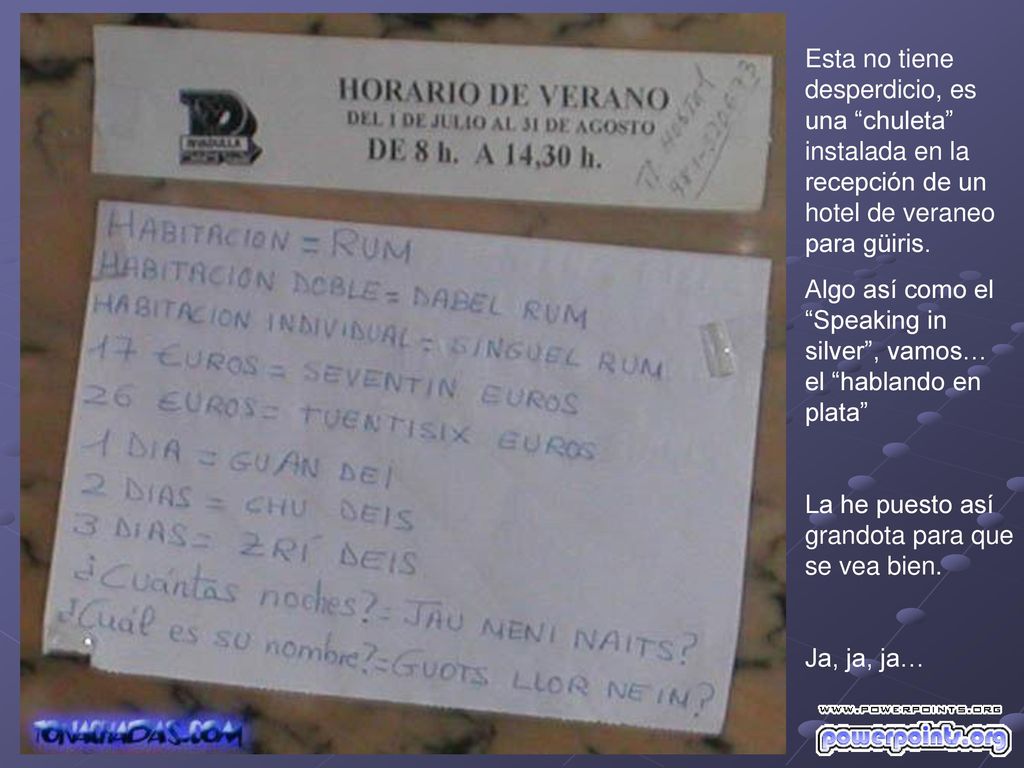 HORARIO DE VERANO
DEL 1 DE JULIO AL 31 DE AGOSTO
DE 8 h. A 14,30 h.
HABITACION = RUM
HABITACIÓN DOBLE = DABEL RUM
HABITACION INDIVIDUAL = SINGUEL RUM
17 EUROS = SEVENTIN EUROS
26 EUROS = TUENTISIX EUROS
1 DIA = GUAN DEI
2 DIAS = CHU DEIS
3 DIAS = ZRÍ DEIS
¿Cuántas noches? = JAU MENI NAITS?
¿Cuál es su nombre? = GUOTS LLOR NEIN?
TONAGHADAS.COM
Esta no tiene
desperdicio, es
una “chuleta”
instalada en la
recepción de un
hotel de veraneo
para güiris.
Algo así como el
“Speaking in
silver”, vamos…
el “hablando en
plata”
La he puesto así
grandota para que
se vea bien.
Ja, ja, ja…
WWW.POWERPOINTS.ORG
powerpoints.org